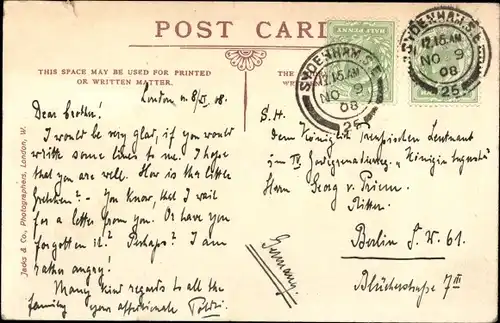 POST CARD
THIS SPACE MAY BE USED FOR PRINTED
OR WRITTEN MATTER.
HALF PENNY
SYDENHAM. S.E.
12.15 AM
NO 9
08
25
SYDENHAM. S.E.
12.15 AM
NO 9
08
25
London, 8/XI 08.
Dear brother!
I would be very glad, if you would
write some lines to me. I hope
that you are well. How is the little
Gretchen? – You know, that I wait
for a letter from you. Or have you
forgotten it? Perhaps? I am
rather angry!
Many kind regards to all the
family your affectionate
S. H.
dem Königlich Preussischen Leutnant
im IV. "Königin Augusta"
Herrn Georg v.
Ritter.
Berlin S. W. 61.
Blücherstraße 7 III
Germany.
Jacks & Co., Photographers, London, W.